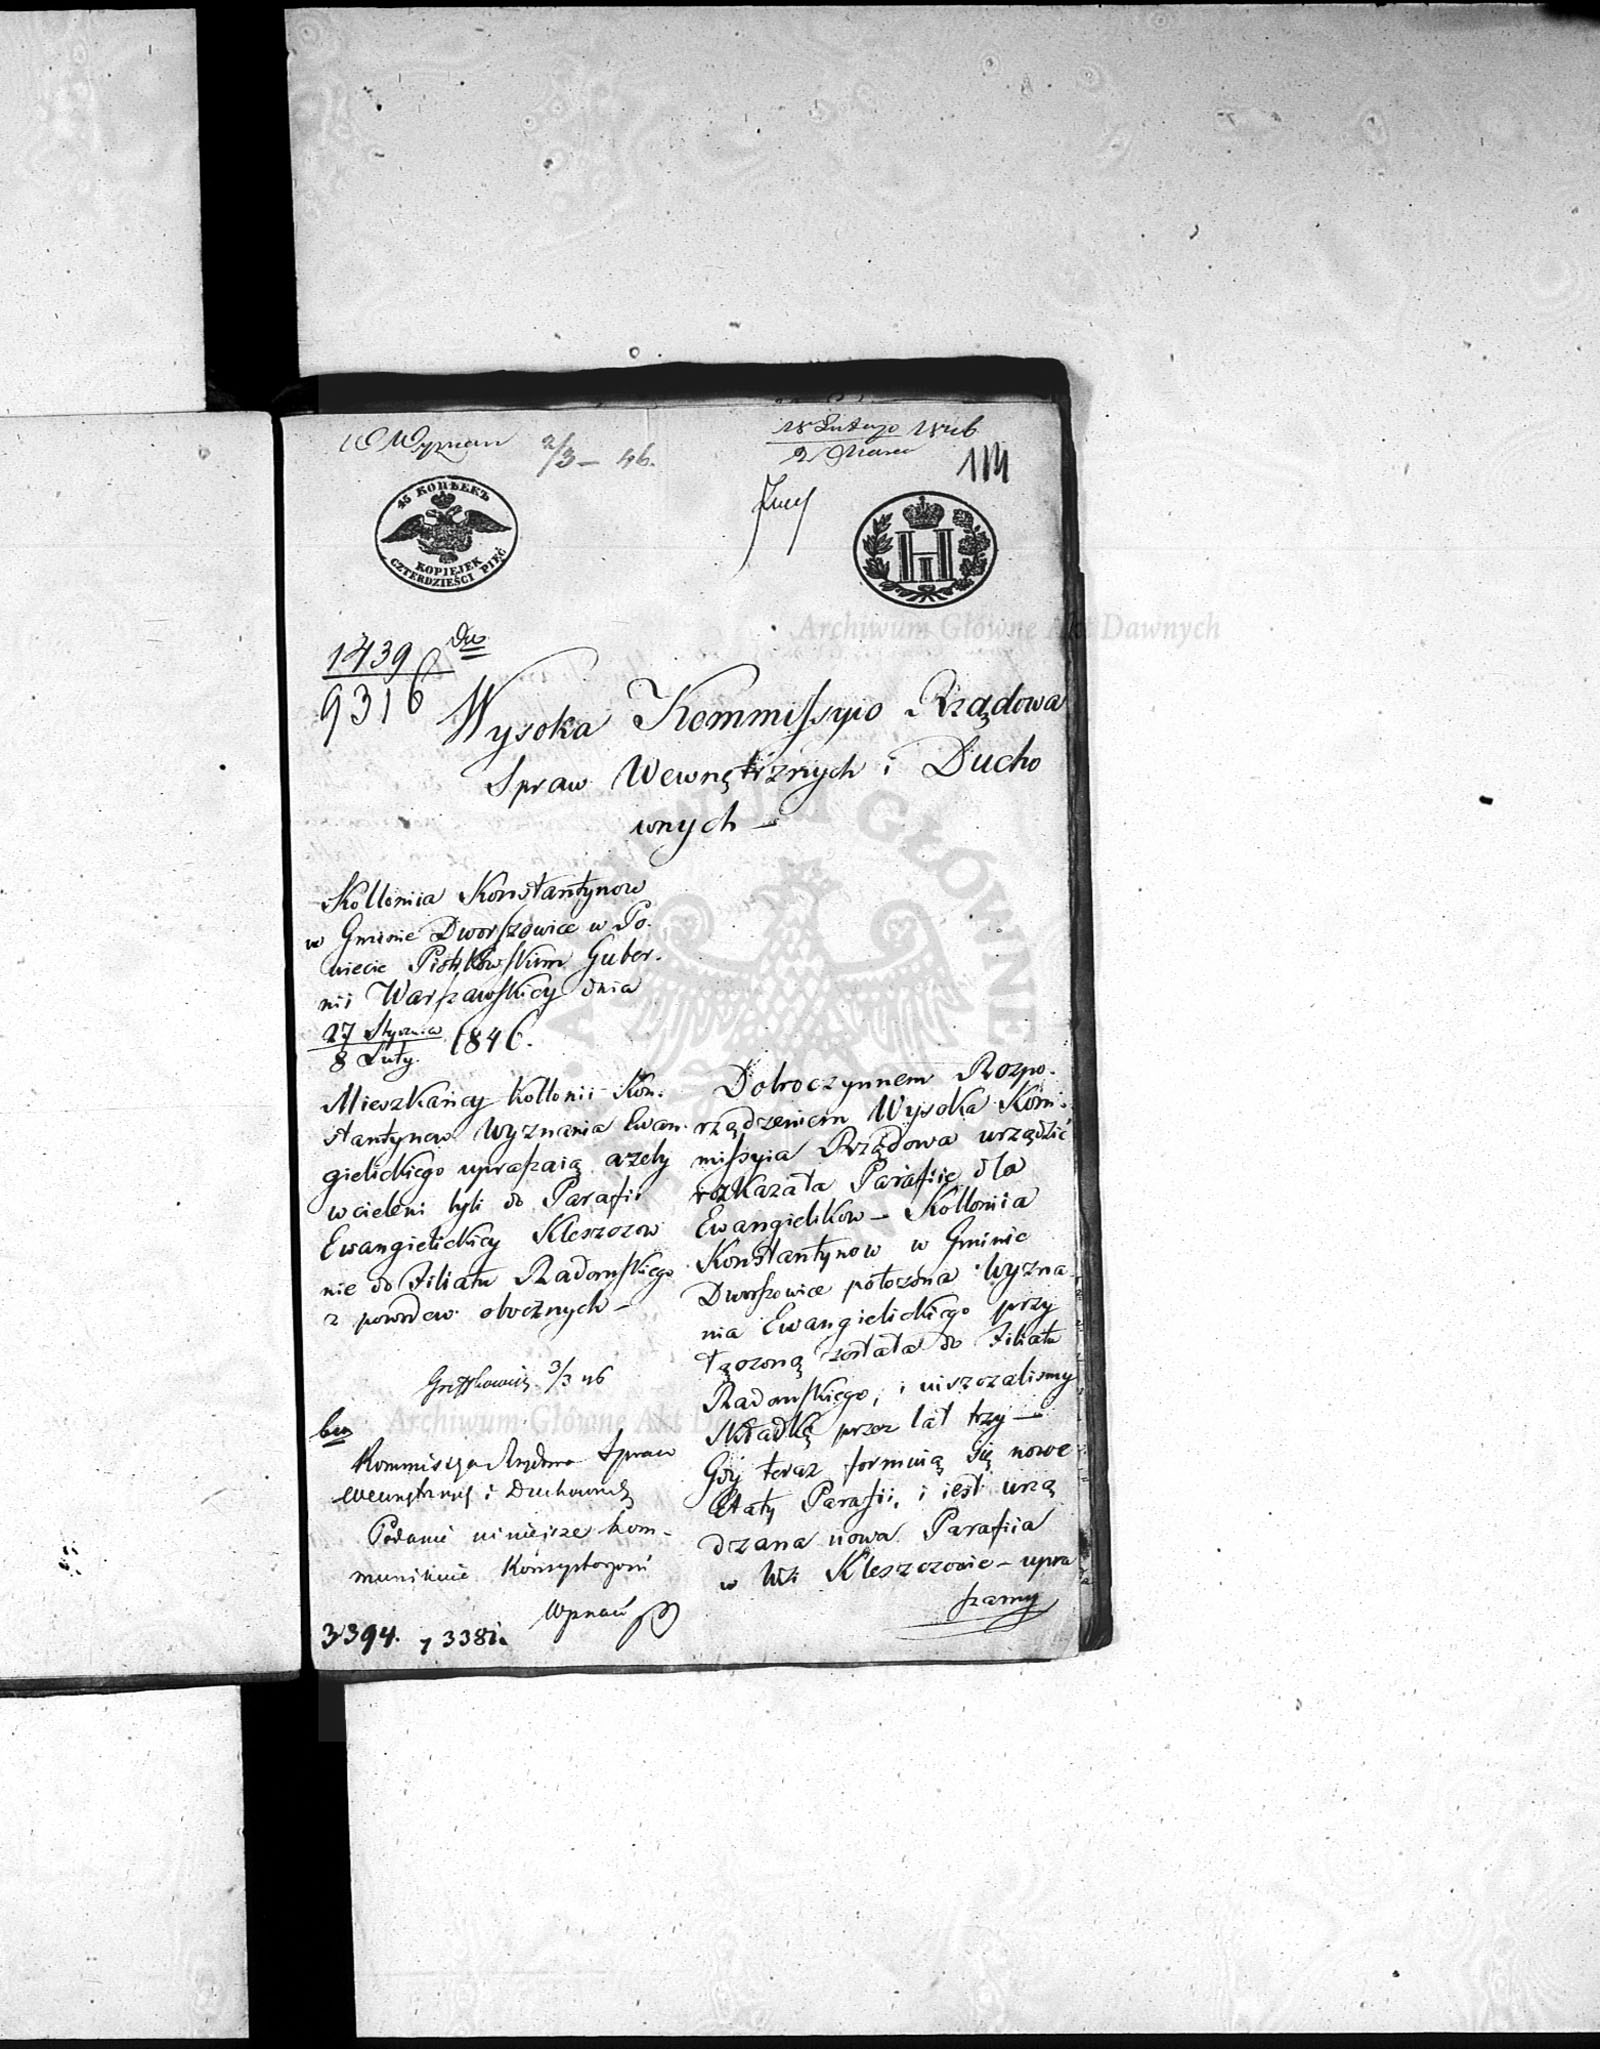 W Wyznań
2/3 – 46.
18 Lutego 1846
2 Marca
111
45 КОПѢЕКЪ
KOPIEJEK
CZTERDZIEŚCI PIĘĆ
Archiwum Główne Akt Dawnych
1439
9316
Wysoka Kommissyio Rządowa
Spraw Wewnętrznych i Ducho
wnych –
Kollonia Konstantynow
w Gminie Dworszowice w Po-
wiecie Piotrkowskim Guber-
nii Warszawskiey dnia
27 Stycznia
8 Luty. 1846.
Mieszkańcy kollonii Kon-
stantynow Wyznania Ewan-
gielickiego upraszaią azeby
wcieleni byli do Parafii
Ewangielickiey Kleszczow
nie do Filiału Radomskiego
z powodow obocznych –
3/3 46
Kommissya Rządowa Spraw
Wewnętrznych i Duchownych
Podanie niniejsze kom-
munikuie Konsystorzowi
3394. 7338i.
Dobroczynnem Rozpo-
rządzeniem Wysoka Kom-
missyia Rządowa urządzić
rozkazała Parafiię dla
Ewangielikow – Kollonia
Konstantynow w Gminie
Dworszowice połozona Wyzna
nia Ewangielickiego przy
łączoną została do Filiału
Radomskiego, i uiszczalismy
Składkę przez lat trzy –
Gdy teraz formuią się nowe
Etaty Parafii, i iest urzą
dzana nowa Parafiia
w Wsi Kleszczowie – upra
szamy
ARCHIWUM GŁÓWNE
Archiwum Główne Akt Da